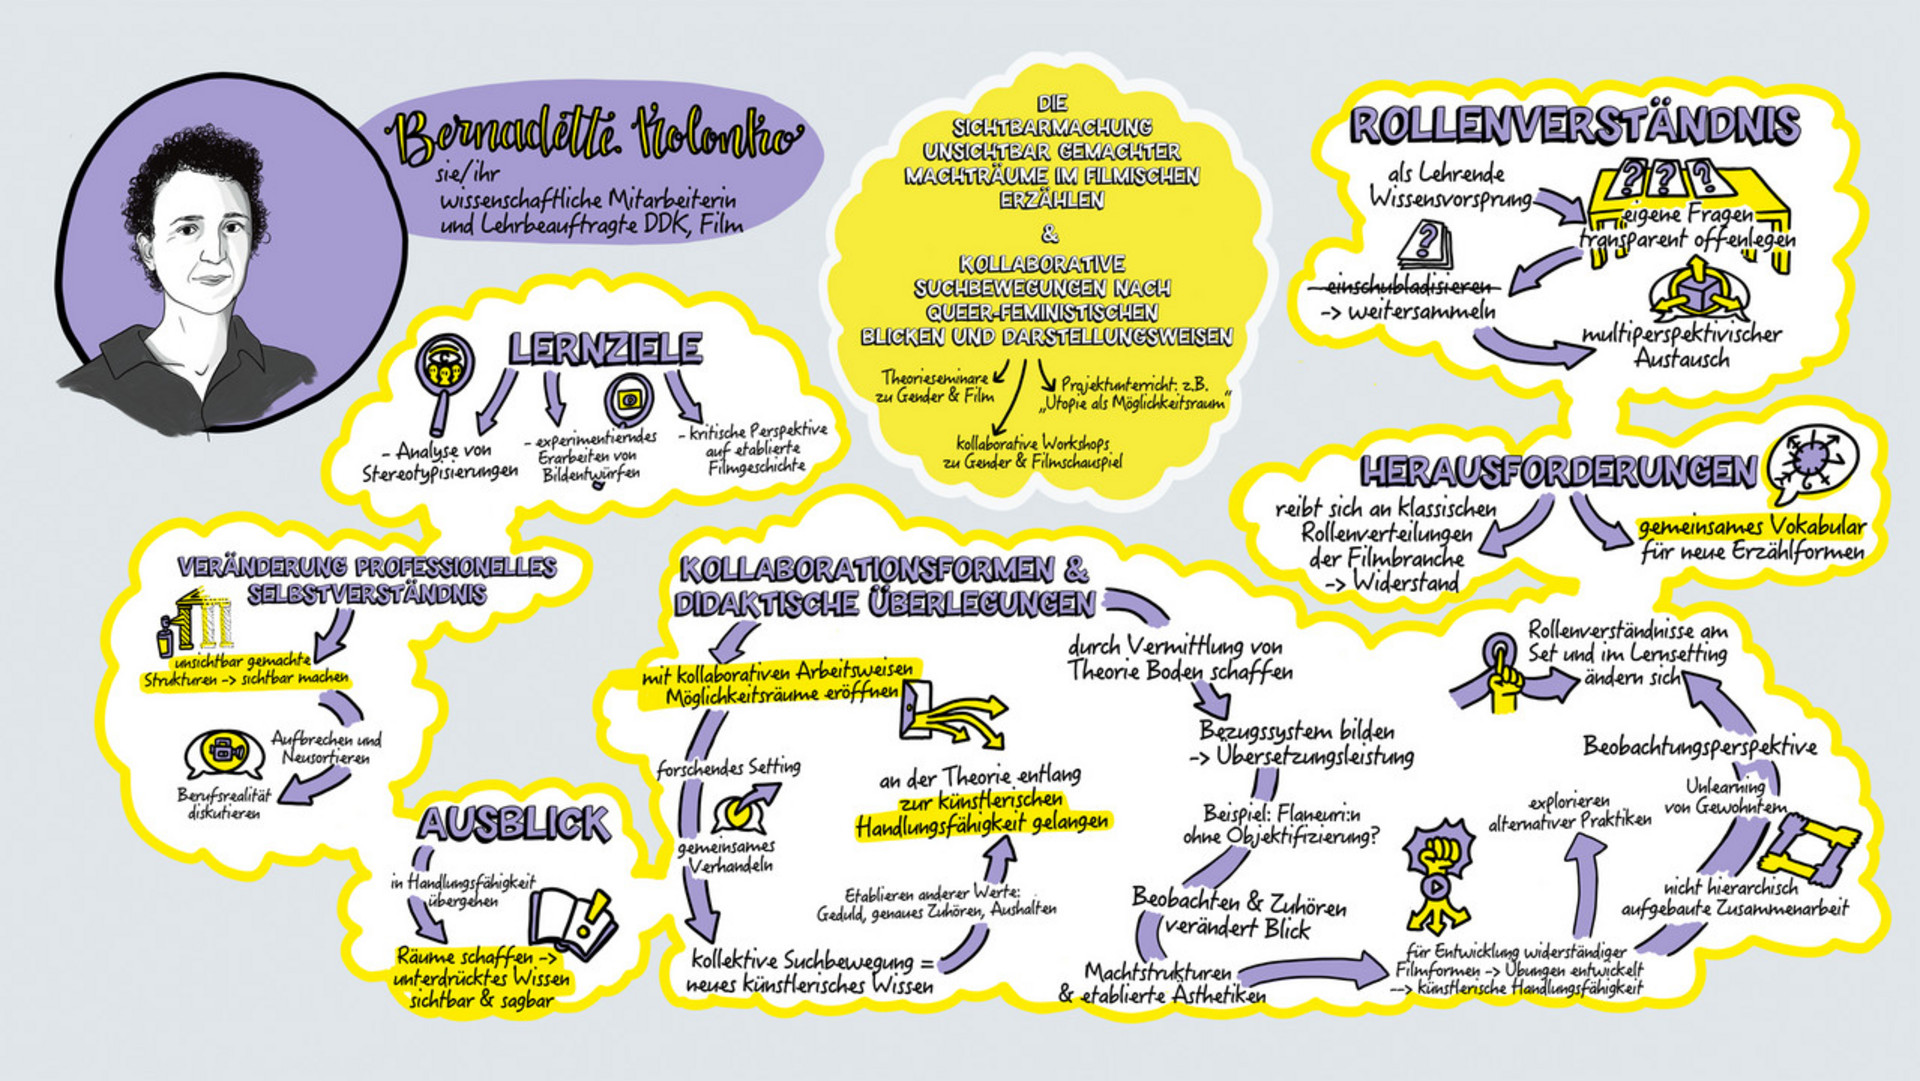 Bernadette Kolonko
sie/ihr
wissenschaftliche Mitarbeiterin
und Lehrbeauftragte DDK, Film
DIE
SICHTBARMACHUNG
UNSICHTBAR GEMACHTER
MACHTRÄUME IM FILMISCHEN
ERZÄHLEN
&
KOLLABORATIVE
SUCHBEWEGUNGEN NACH
QUEER-FEMINISTISCHEN
BLICKEN UND DARSTELLUNGSWEISEN
Theorieseminare
zu Gender & Film
Projektunterricht: z.B.
„Utopie als Möglichkeitsraum"
kollaborative Workshops
zu Gender & Filmschauspiel
ROLLENVERSTÄNDNIS
als Lehrende
Wissensvorsprung
? ? ?
eigene Fragen
transparent offenlegen
?
einschubladisieren
-> weitersammeln
multiperspektivischer
Austausch
LERNZIELE
- Analyse von
Stereotypisierungen
- experimentierndes
Erarbeiten von
Bildentwürfen
- kritische Perspektive
auf etablierte
Filmgeschichte
HERAUSFORDERUNGEN
reibt sich an klassischen
Rollenverteilungen
der Filmbranche
-> Widerstand
gemeinsames Vokabular
für neue Erzählformen
VERÄNDERUNG PROFESSIONELLES
SELBSTVERSTÄNDNIS
unsichtbar gemachte
Strukturen -> sichtbar machen
Aufbrechen und
Neusortieren
Berufsrealität
diskutieren
AUSBLICK
in Handlungsfähigkeit
übergehen
Räume schaffen ->
unterdrücktes Wissen
sichtbar & sagbar
KOLLABORATIONSFORMEN &
DIDAKTISCHE ÜBERLEGUNGEN
mit kollaborativen Arbeitsweisen
Möglichkeitsräume eröffnen
forschendes Setting
gemeinsames
Verhandeln
kollektive Suchbewegung =
neues künstlerisches Wissen
Etablieren anderer Werte:
Geduld, genaues Zuhören, Aushalten
an der Theorie entlang
zur künstlerischen
Handlungsfähigkeit gelangen
durch Vermittlung von
Theorie Boden schaffen
Bezugssystem bilden
-> Übersetzungsleistung
Beispiel: Flaneuri:n
ohne Objektifizierung?
Beobachten & Zuhören
verändert Blick
Machtstrukturen
& etablierte Ästhetiken
für Entwicklung widerständiger
Filmformen -> Übungen entwickelt
--> künstlerische Handlungsfähigkeit
explorieren
alternativer Praktiken
nicht hierarchisch
aufgebaute Zusammenarbeit
Unlearning
von Gewohntem
Beobachtungsperspektive
Rollenverständnisse am
Set und im Lernsetting
ändern sich